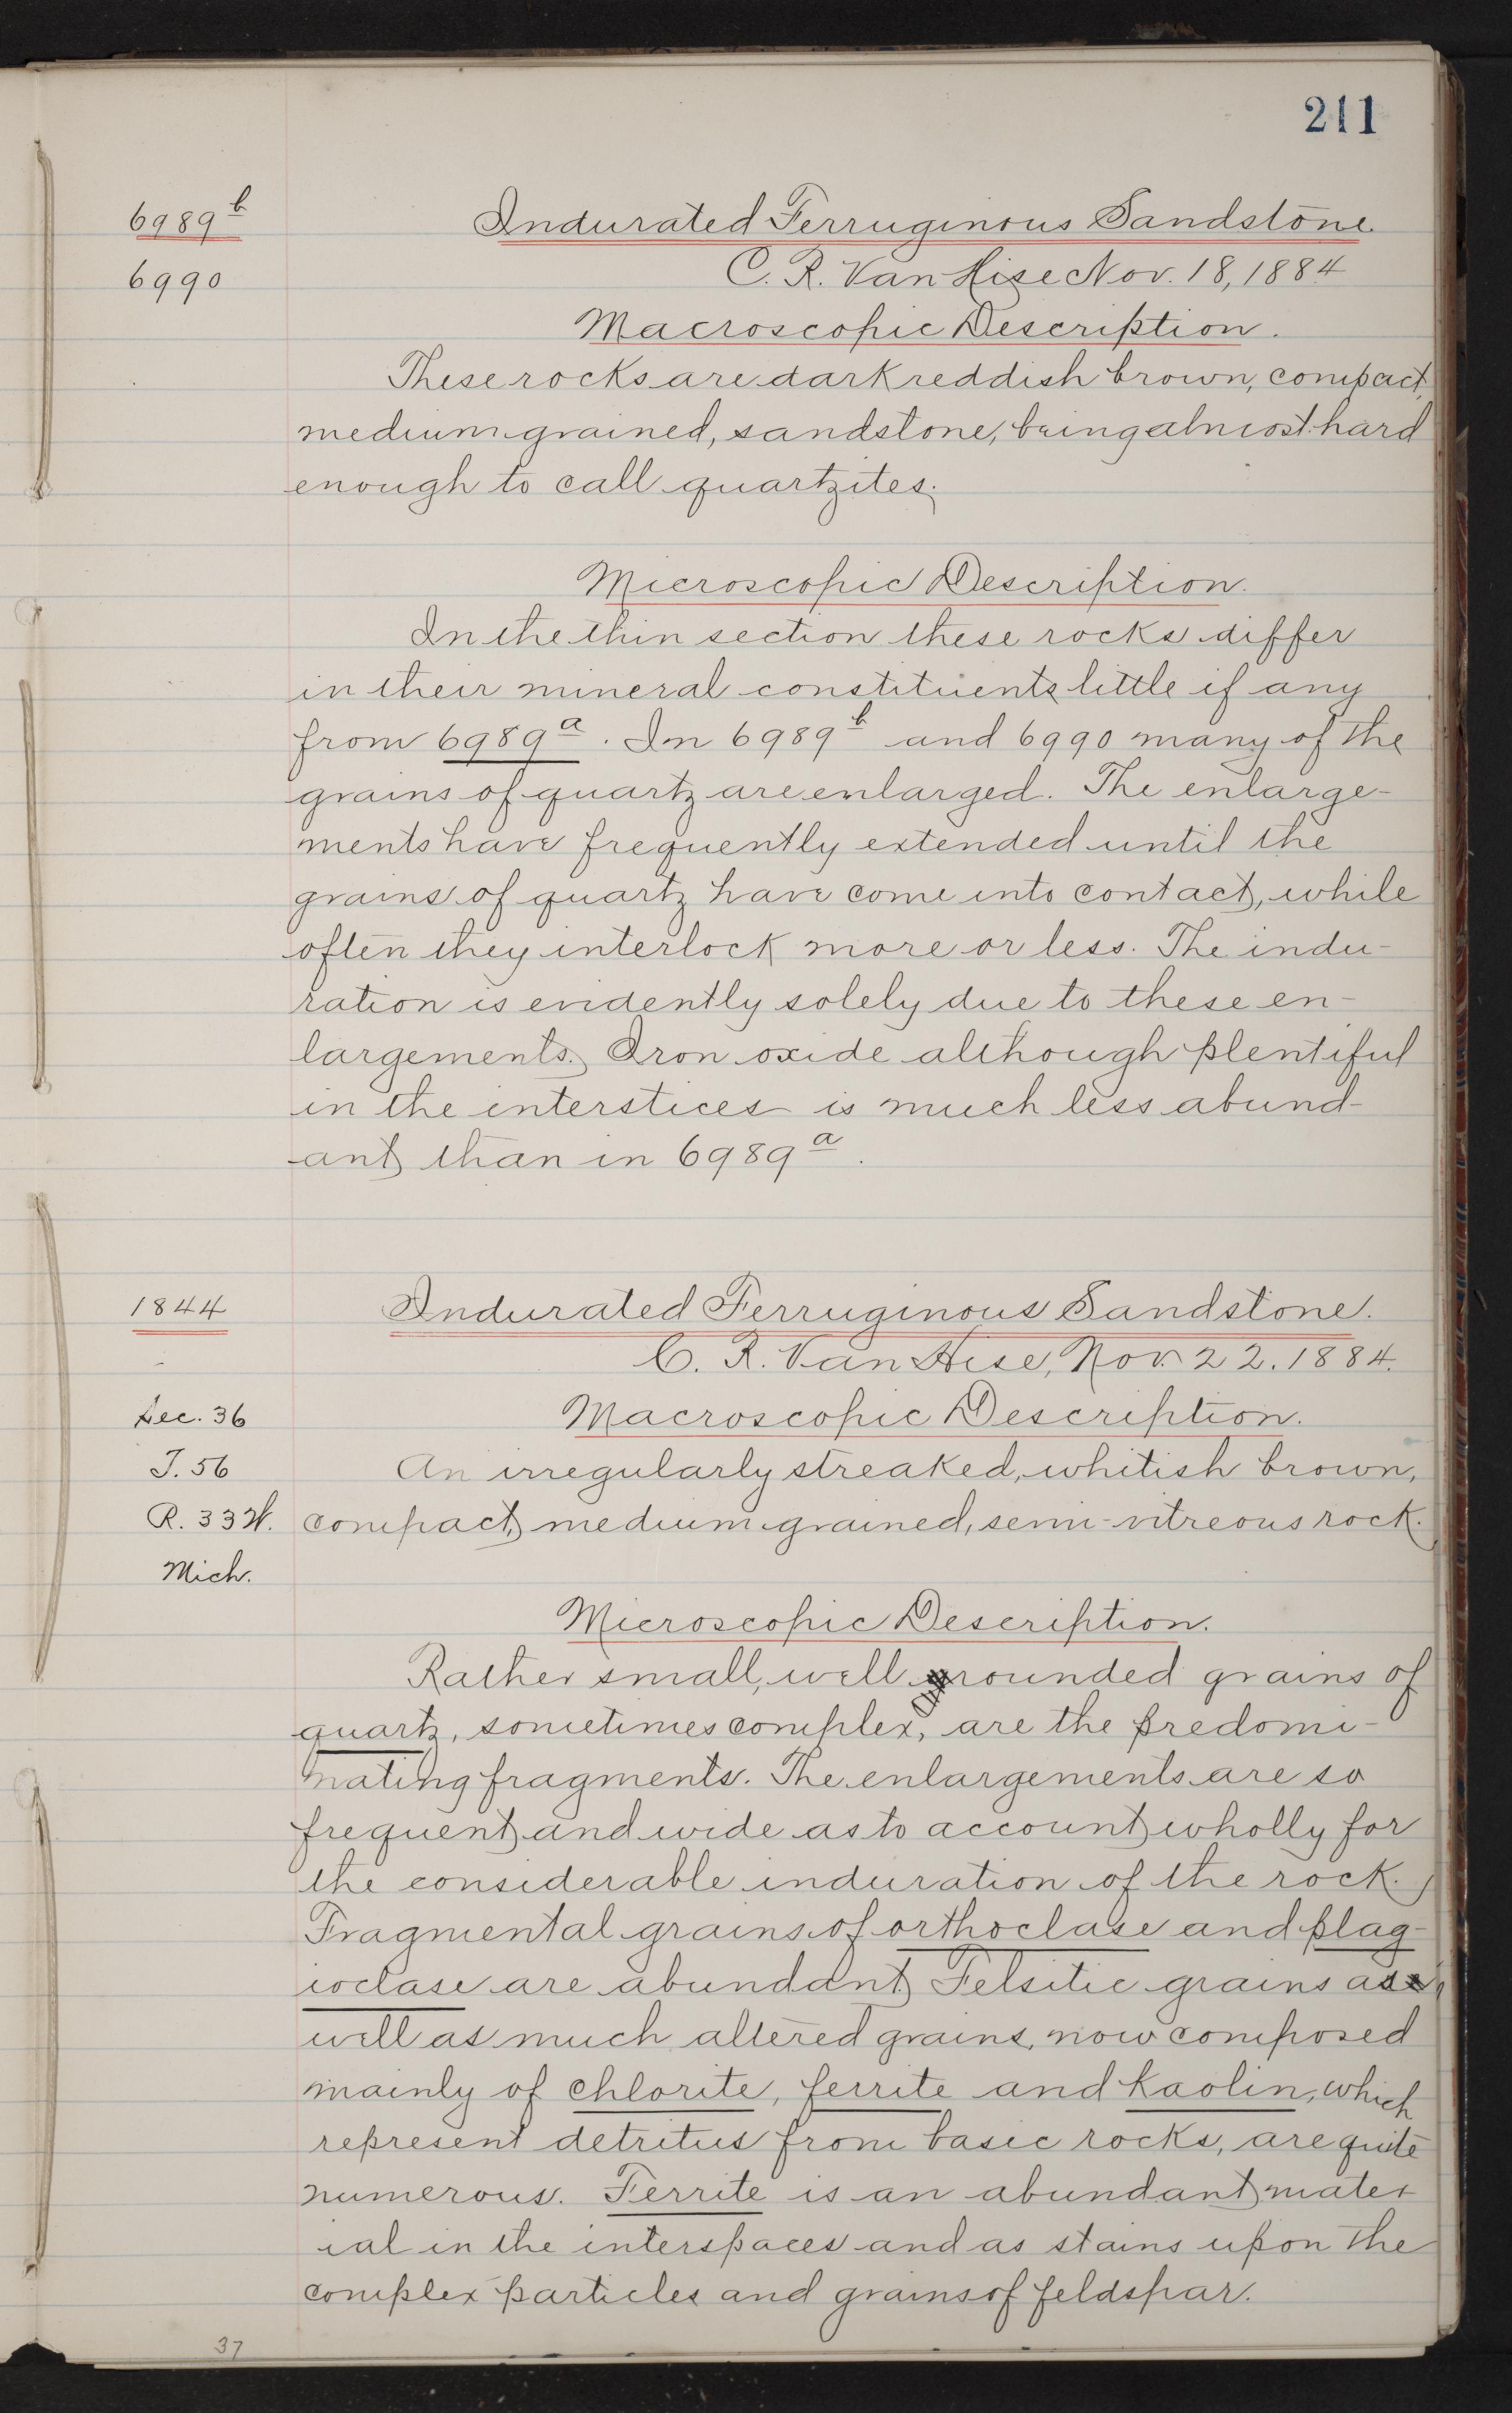 211
6989b Indurated Ferruginous Sandstone.
6990 C. R. Van Hise Nov. 18, 1884
Macroscopic Description.
These rocks are dark reddish brown, compact,
medium grained, sandstone, being almost hard
enough to call quartzites.
Microscopic Description.
In the thin section these rocks differ
in their mineral constituents little if any
from 6989a. In 6989b and 6990 many of the
grains of quartz are enlarged. The enlarge-
ments have frequently extended until the
grains of quartz have come into contact, while
often they interlock more or less. The indu-
ration is evidently solely due to these en-
largements. Iron oxide although plentiful
in the interstices is much less abund-
ant than in 6989a.
1844 Indurated Ferruginous Sandstone.
C. R. Van Hise, Nov. 22. 1884.
Sec. 36 Macroscopic Description.
T. 56 An irregularly streaked, whitish brown,
R. 33 W. compact, medium grained, semi-vitreous rock.
Mich.
Microscopic Description.
Rather small, well rounded grains of
quartz, sometimes complex, are the predomi-
nating fragments. The enlargements are so
frequent and wide as to account wholly for
the considerable induration of the rock.
Fragmental grains of orthoclase and plag-
ioclase are abundant. Felsitic grains as
well as much altered grains, now composed
mainly of chlorite, ferrite and kaolin, which
represent detritus from basic rocks, are quite
numerous. Ferrite is an abundant mater
ial in the interspaces and as stains upon the
complex particles and grains of feldspar.
37